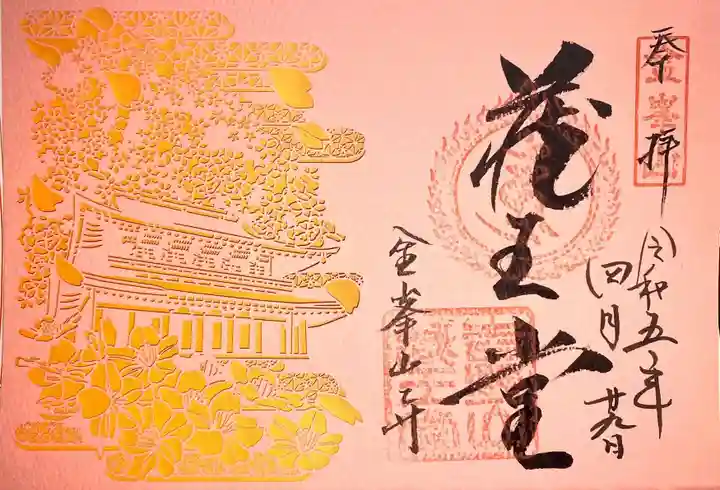 奉拝
令和五年
四月廿九日
蔵王堂
金峯山寺